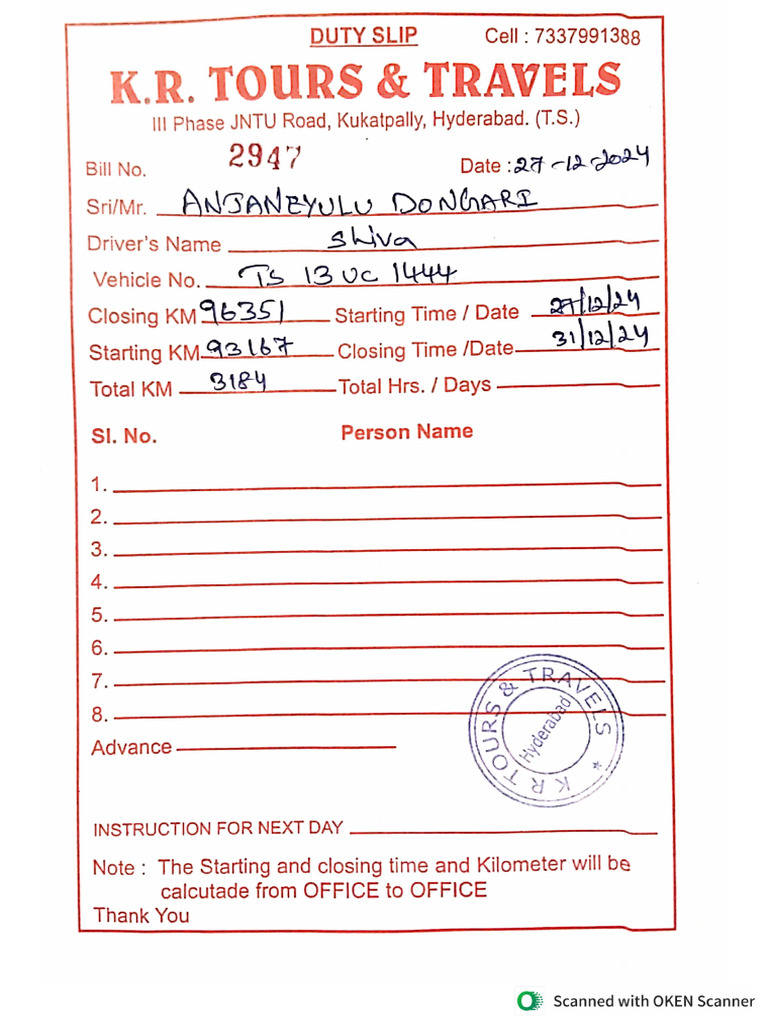 DUTY SLIP Cell : 7337991388
K.R. TOURS & TRAVELS
III Phase JNTU Road, Kukatpally, Hyderabad. (T.S.)
Bill No. 2947 Date : 27-12-2024
Sri/Mr. ANJANEYULU DONGARI
Driver's Name Shiva
Vehicle No. TS 13 UC 1444
Closing KM 96351 Starting Time / Date 27/12/24
Starting KM 93167 Closing Time /Date 31/12/24
Total KM 3184 Total Hrs. / Days
Sl. No. Person Name
1.
2.
3.
4.
5.
6.
7.
8.
K R TOURS & TRAVELS * Hyderabad
Advance
INSTRUCTION FOR NEXT DAY
Note : The Starting and closing time and Kilometer will be
calcutade from OFFICE to OFFICE
Thank You
Scanned with OKEN Scanner